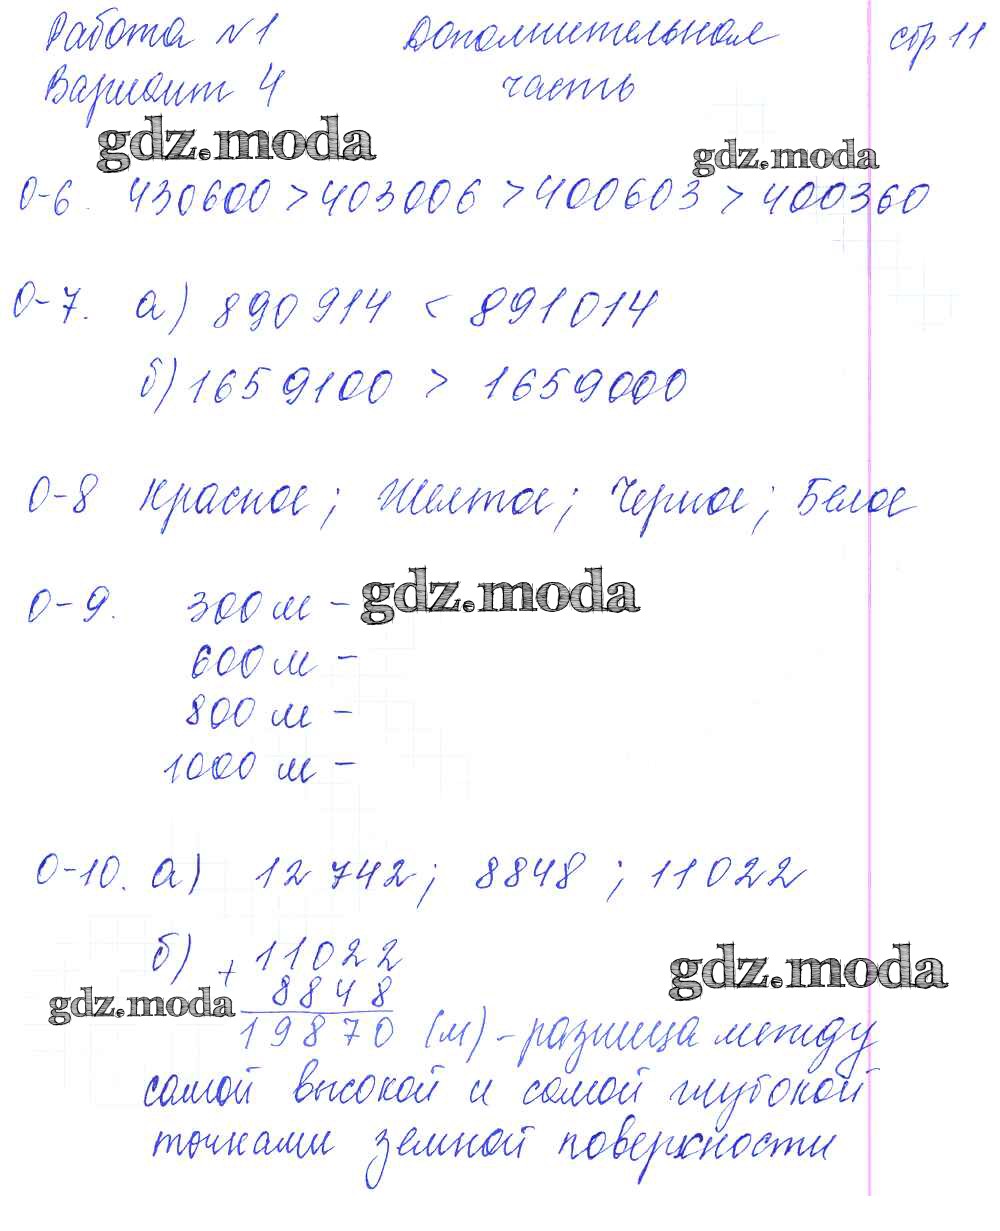 Работа №1 Дополнительная стр 11
Вариант 4 часть
gdz.moda
gdz.moda
0-6. 430600 > 403006 > 400603 > 400360
0-7. а) 890914 < 891014
б) 1659100 > 1659000
0-8 Красное; Желтое; Черное; Белое
0-9. 300 м - gdz.moda
600 м -
800 м -
1000 м -
0-10. а) 12 742; 8848; 11022
б) + 11022
gdz.moda
8848
gdz.moda
19870 (м) - разница между
самой высокой и самой глубокой
точками земной поверхности